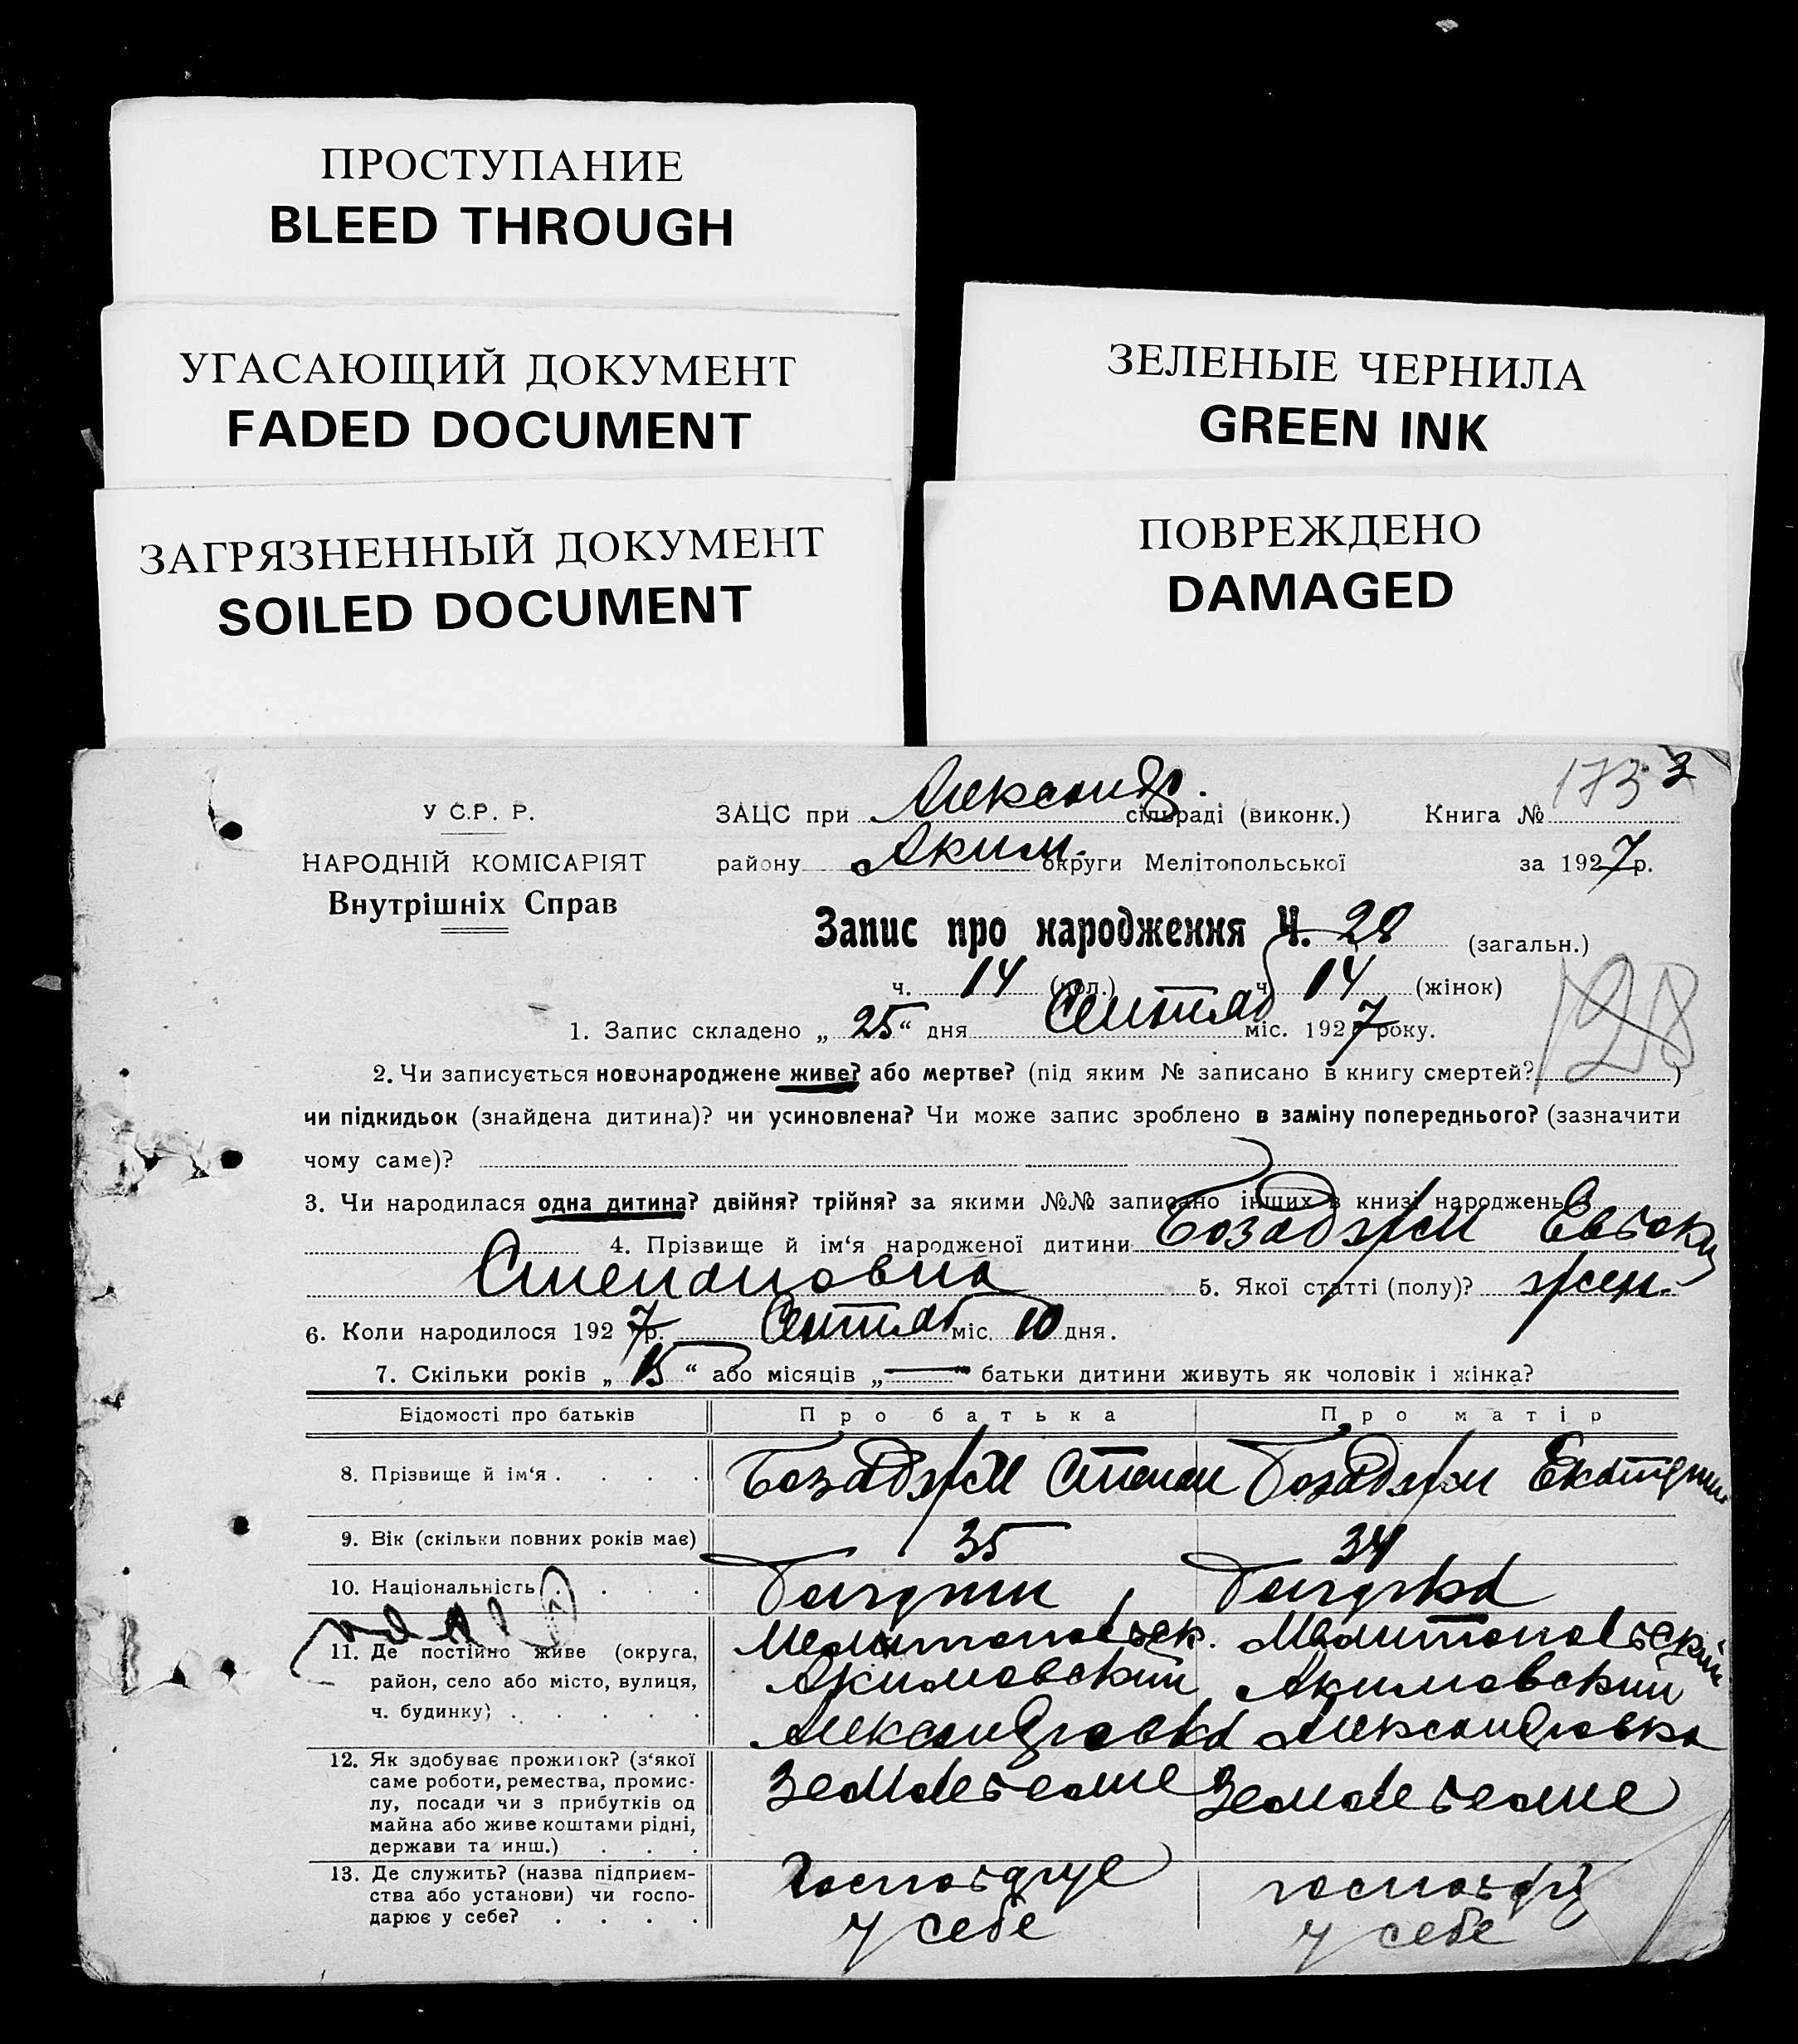 ПРОСТУПАНИЕ
BLEED THROUGH
УГАСАЮЩИЙ ДОКУМЕНТ
FADED DOCUMENT
ЗЕЛЕНЫЕ ЧЕРНИЛА
GREEN INK
ЗАГРЯЗНЕННЫЙ ДОКУМЕНТ
SOILED DOCUMENT
ПОВРЕЖДЕНО
DAMAGED
173 3
У С.Р. Р. ЗАЦС при Александр. сільраді (виконк.) Книга №
НАРОДНІЙ КОМІСАРІЯТ району Аким. округи Мелітопольської за 1927 р.
Внутрішніх Справ
Запис про народження Ч. 28 (загальн.)
ч. 14 (чол.) ч. 14 (жінок)
28
1. Запис складено „ 25 “ дня Сентяб міс. 1927 року.
2. Чи записується новонароджене живе? або мертве? (під яким № записано в книгу смертей? )
чи підкидьок (знайдена дитина)? чи усиновлена? Чи може запис зроблено в заміну попереднього? (зазначити
чому саме)?
3. Чи народилася одна дитина? двійня? трійня? за якими №№ записано інших в книзі народжень?
4. Прізвище й ім‘я народженої дитини Бозаджи
Степановна 5. Якої статті (полу)? жен.
6. Коли народилося 1927 р. Сентяб міс. 10 дня.
7. Скільки років „ 15 “ або місяців „ — “ батьки дитини живуть як чоловік і жінка?
Відомості про батьків Про батька Про матір
8. Прізвище й ім‘я . . . . Бозаджи Степан Бозаджи Екатерина
9. Вік (скільки повних років має) 35 34
10. Національність . . . . Болгарин Болгарка
11. Де постійно живе (округа, Мелитопольск. Мелитопольский
район, село або місто, вулиця, Акимовский Акимовский
ч. будинку) . . . . . Александровка Александровка
12. Як здобуває прожиток? (з‘якої
саме роботи, ремества, промис- Земледелие Земледелие
лу, посади чи з прибутків од
майна або живе коштами рідні,
держави та инш.) . . .
13. Де служить? (назва підприєм- Господарує
ства або установи) чи госпо-
дарює у себе? . . . . у себе у себе